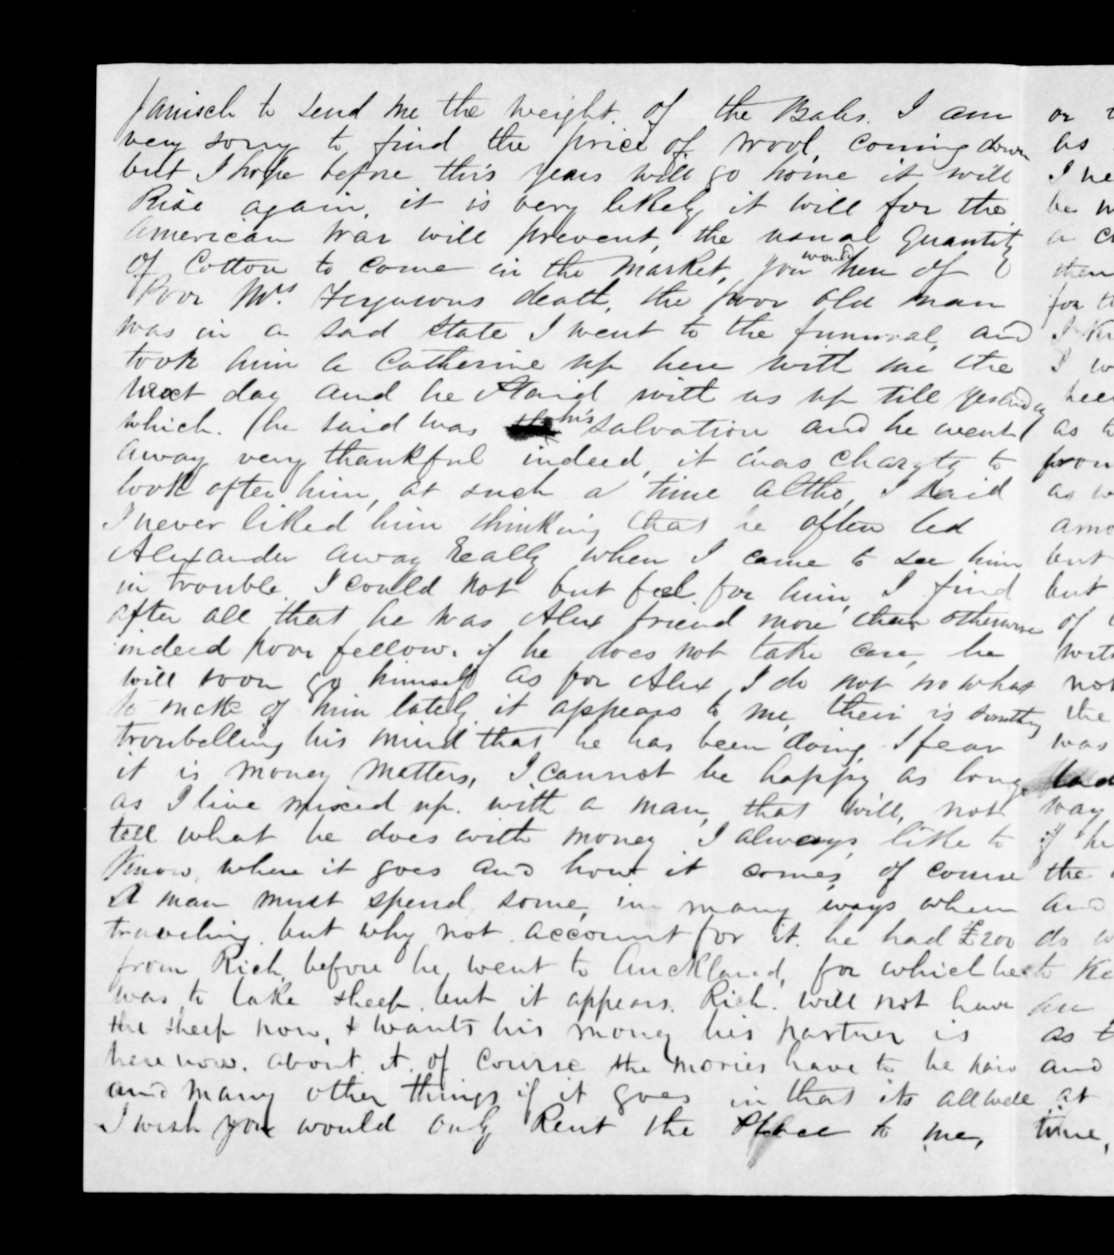 Janisch to send me the weight of the Bales. I am
very sorry to find the price of wool, coming down
but I hope before this years will go home it will
Rise again, it is very likely it will for the
American War will prevent, the usual Quantity
of Cotton to come in the market, you would here of
Poor Mrs Fergusons death, the poor old man
was in a sad state I went to the funural, and
took him & Catherine up here with me the
next day and he staid with us up till yesterday
which. (he said was his salvation and he went
away very thankful indeed, it was charyty to
look after him, at such a time altho, I said
I never liked him thinking that he often led
Alexander away Really when I came to see him
in trouble I could not but feel for him, I find
after all that he was Alex friend more than otherwise
indeed poor fellow. if he does not take care, he
will soon go himself As for Alex, I do not no what
to make of him lately it appears to me their is somthing
troubelling his mind that he has been doing. I fear
it is money matters, I cannot be happy as long
as I live mixed up with a man, that will, not
tell what he does with money I always like to
Know, where it goes and how it comes, of course
A man must spend some, in many ways when
traveling. but why not account for it. he had £200
from Rich, before he went to Auckland, for which he
was to take sheep. but it appears. Rich. will not have
the sheep now, & wants his money his partner is
here now. about it. of course the mories have to be paid
and many other things if it goes in that its all well
I wish you would only Rent the Place to me,